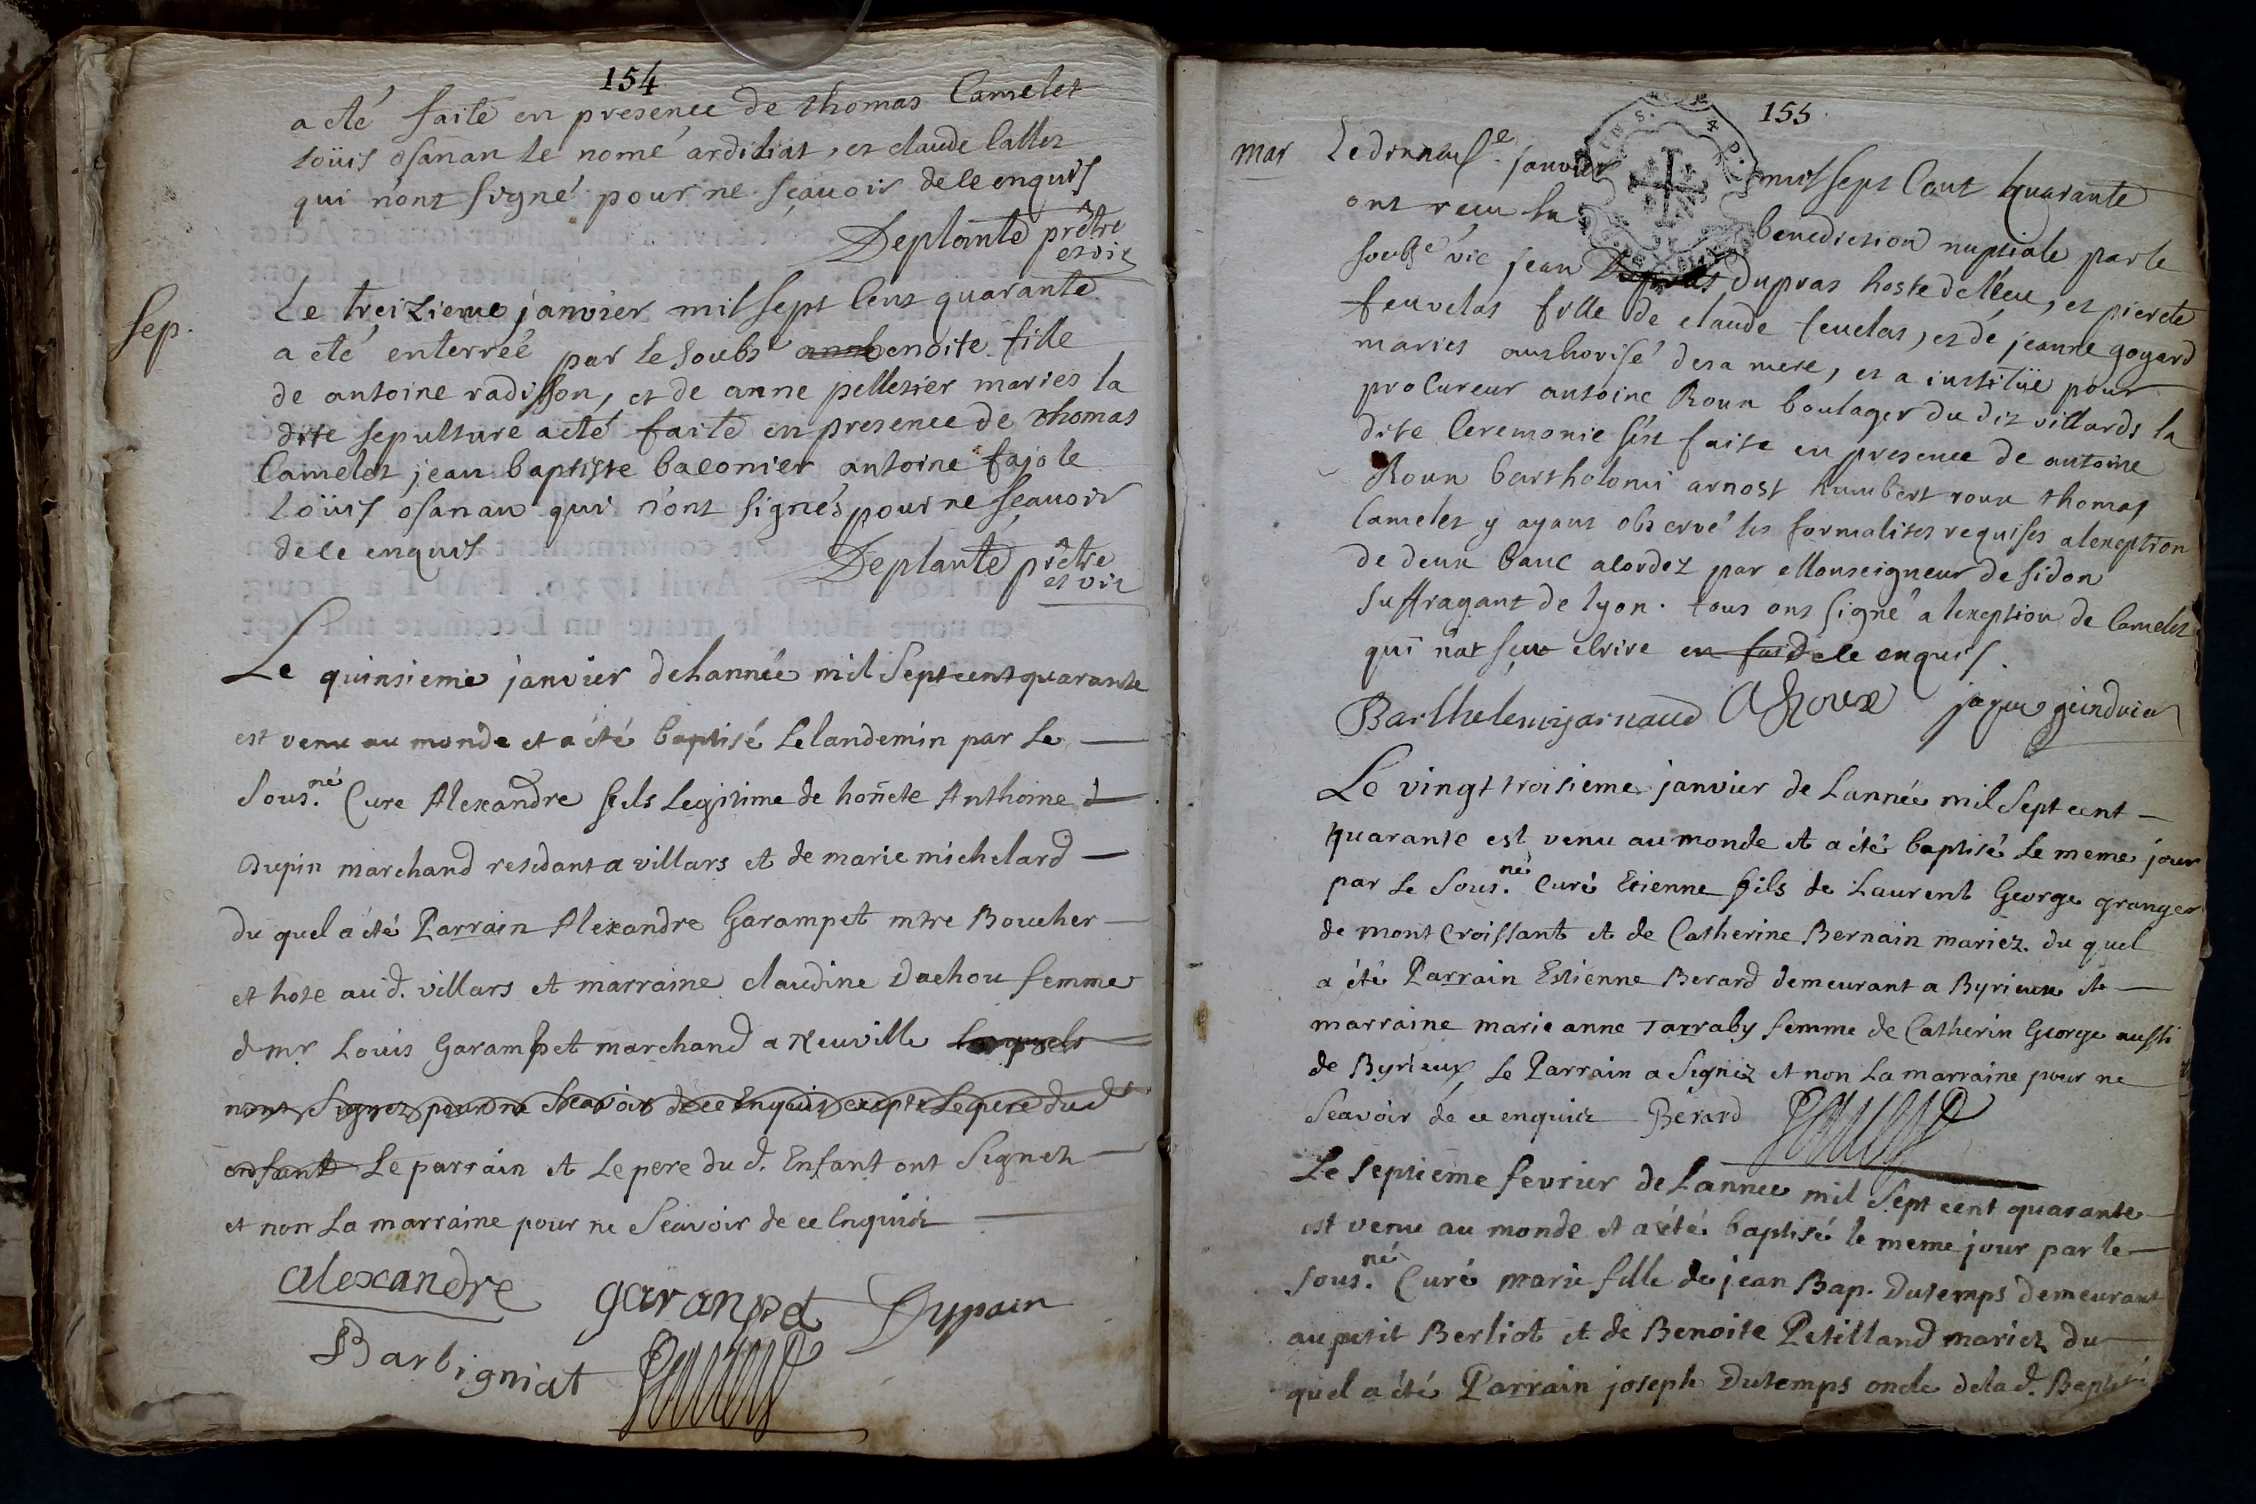 154
a eté faite en presence de thomas Camelet
loüis osanan le nomé ardiliat, et claude Callet
qui n'ont signé pour ne sçauoir de ce enquis
Deplante prêtre
et vic
Sep.
Le treizieme janvier mil sept Cent quarante
a eté enterreé par le soubs benoite fille
de antoine radisson, et de anne pelletier maries la
dite sepulture a eté faite en presence de thomas
Camelet, jean baptiste baconier antoine fajole
loüis osanan qui n'ont signés pour ne sçauoir
de ce enquis
Deplante prêtre
et vic
Le quinsieme janvier de lannée mil Sept cent quarante
est venu au monde et a été baptisé Le landemin par Le
Sous.né Cure Alexandre fils Legitime de honête Anthoine
Dupin marchand residant a villars et de marie michelard
du quel a été Parrain Alexandre Garampet mtre Boucher
et hote au d. villars et marraine claudine Dachou femme
d mr Louis Garampet marchand a Neuville Lesquels
nont Signez pour ne Sçavoir de ce Enquis exepté Le pere du d
enfant Le parrain et Le pere du d. Enfant ont Signeh
et non La marraine pour ne Scavoir de ce Enquise
alexandre garanpet Dypain
Barbigniat
155
mar
Le dixneufe janvier mil sept Cent quarante
ont recu la benediction nuptiale par le
soubse vic jean dupras hoste de lieu, et pierete
feuvelas fille de claude feuelas, et de jeanne goyard
maries authorisé de sa mere, et a institüe pour
procureur antoine Roux boulager du dit villards la
dite Ceremonie s'est faite en presence de antoine
Roux bartholomi arnost humbert roux thomas
Camelet y ayant observé les formalites requises a lexeption
de deux banc acordez par Monseigneur de sidon
suffragant de lyon. tous ont signé a lexeption de Camelet
qui n'at sçeu Ecrire en foi de ce enquis.
Barthelemy jarnaud A Roux
Le vingt troisieme janvier de Lannée mil Sept cent
quarante est venu au monde et a été baptisé Le meme jour
par Le Sous.né Curé Etienne fils de Laurent George granger
de mont Croissant et de Catherine Bernain mariez. du quel
a été Parrain Estienne Berard demeurant a Byrieux et
marraine marie anne Tarraby femme de Catherin George aussi
de Byrieux, Le Parrain a Signéz et non La marraine pour ne
Scavoir de ce enquise Berard
Le septieme fevrier de Lannee mil Sept cent quarante
est venu au monde et a été baptisé le meme jour par le
sous.né Curé marie fille de jean Bap. Dutemps demeurant
au petit Berliot et de Benoite Petilland mariez du
quel a été Parrain joseph Dutemps oncle de la d. Baptisé